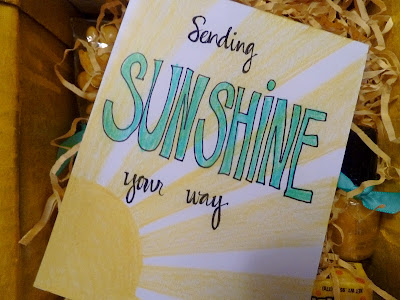 Sending
SUNSHINE
your way